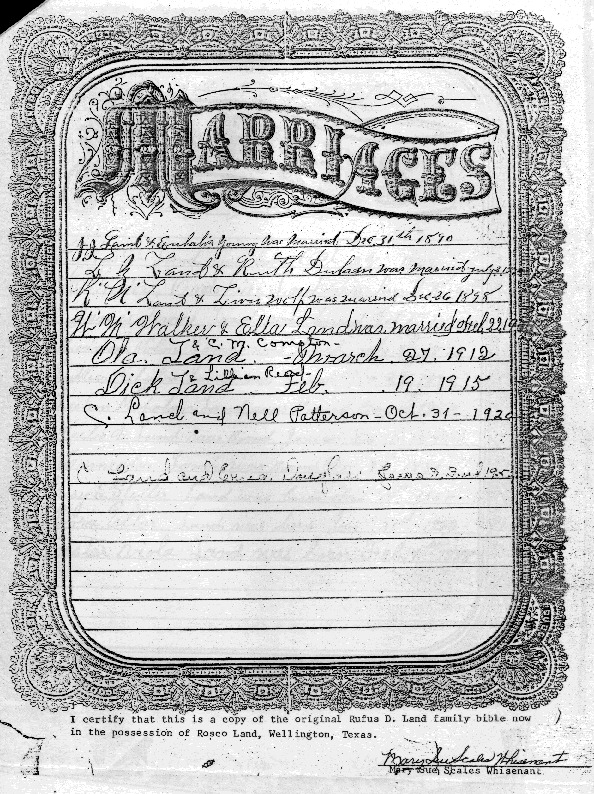 MARRIAGES
J J Land & Young was Married Dec. 31th 1890
L G Land & Ruth was Married July
R Land & was married Dec 26 1898
W W Walker & Ella Land was married Feb. 22 19
& C. M. Compton-
Ola. Land. - March 27. 1912
& Lillian
Dick Land Feb. 19. 1915
C. Land and Nell Patterson - Oct. 31 - 192
C Land and
I certify that this is a copy of the original Rufus D. Land family bible now
in the possession of Rosco Land, Wellington, Texas.
Mary Sue Scales Whisenant
Mary Sue Scales Whisenant